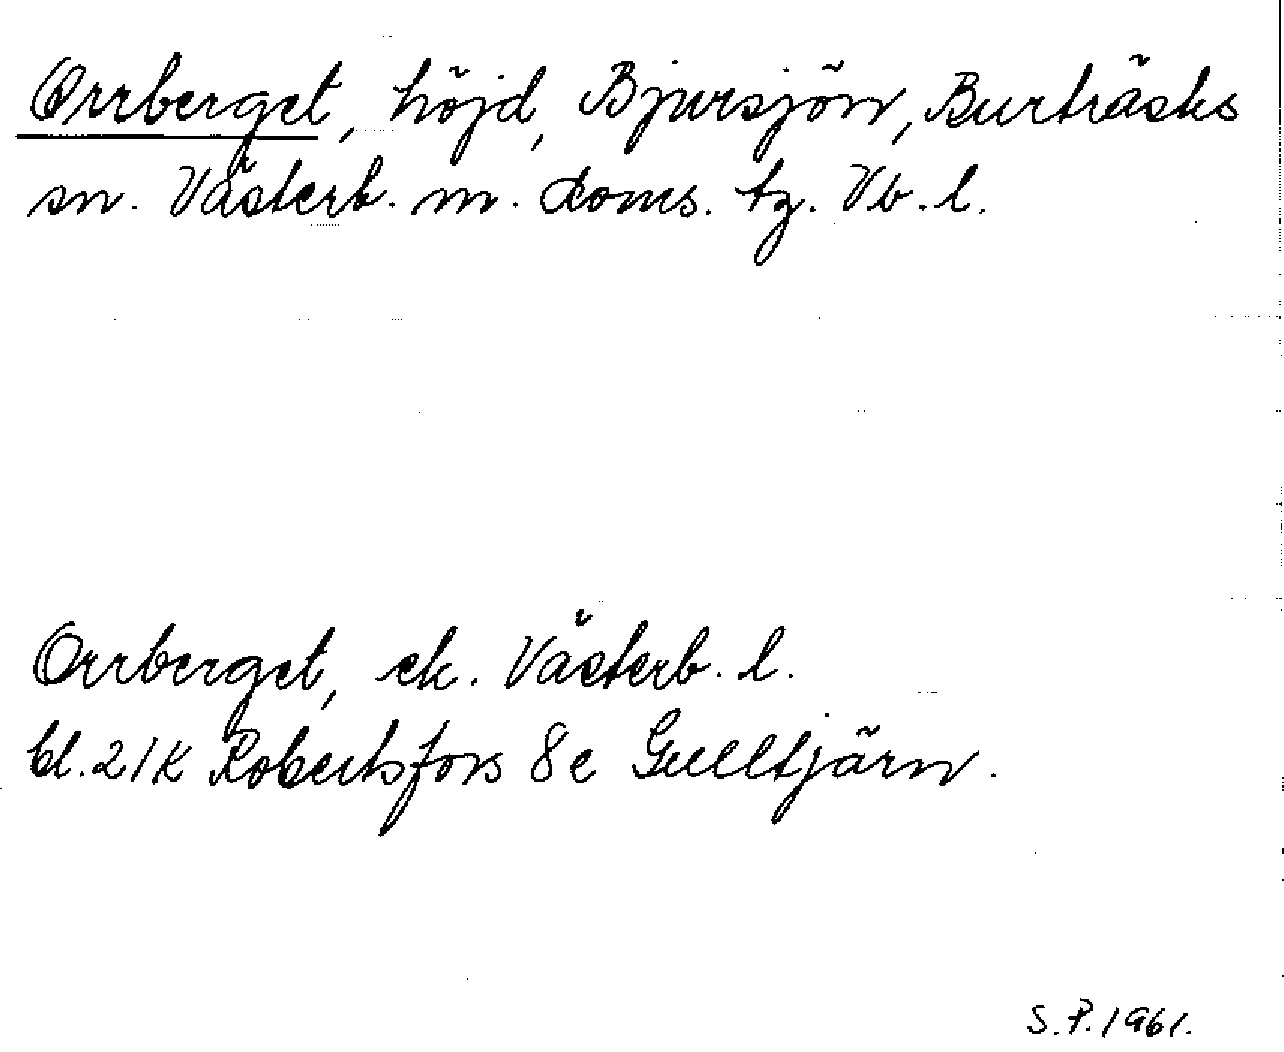 Orrberget, höjd, Bjursjön, Burträsks
sn. Västerb. m. doms. tg. Vb. l.
Orrberget, ek. Västerb. l.
bl. 21K Robertsfors 8e Gulltjärn.
S.P. 1961.